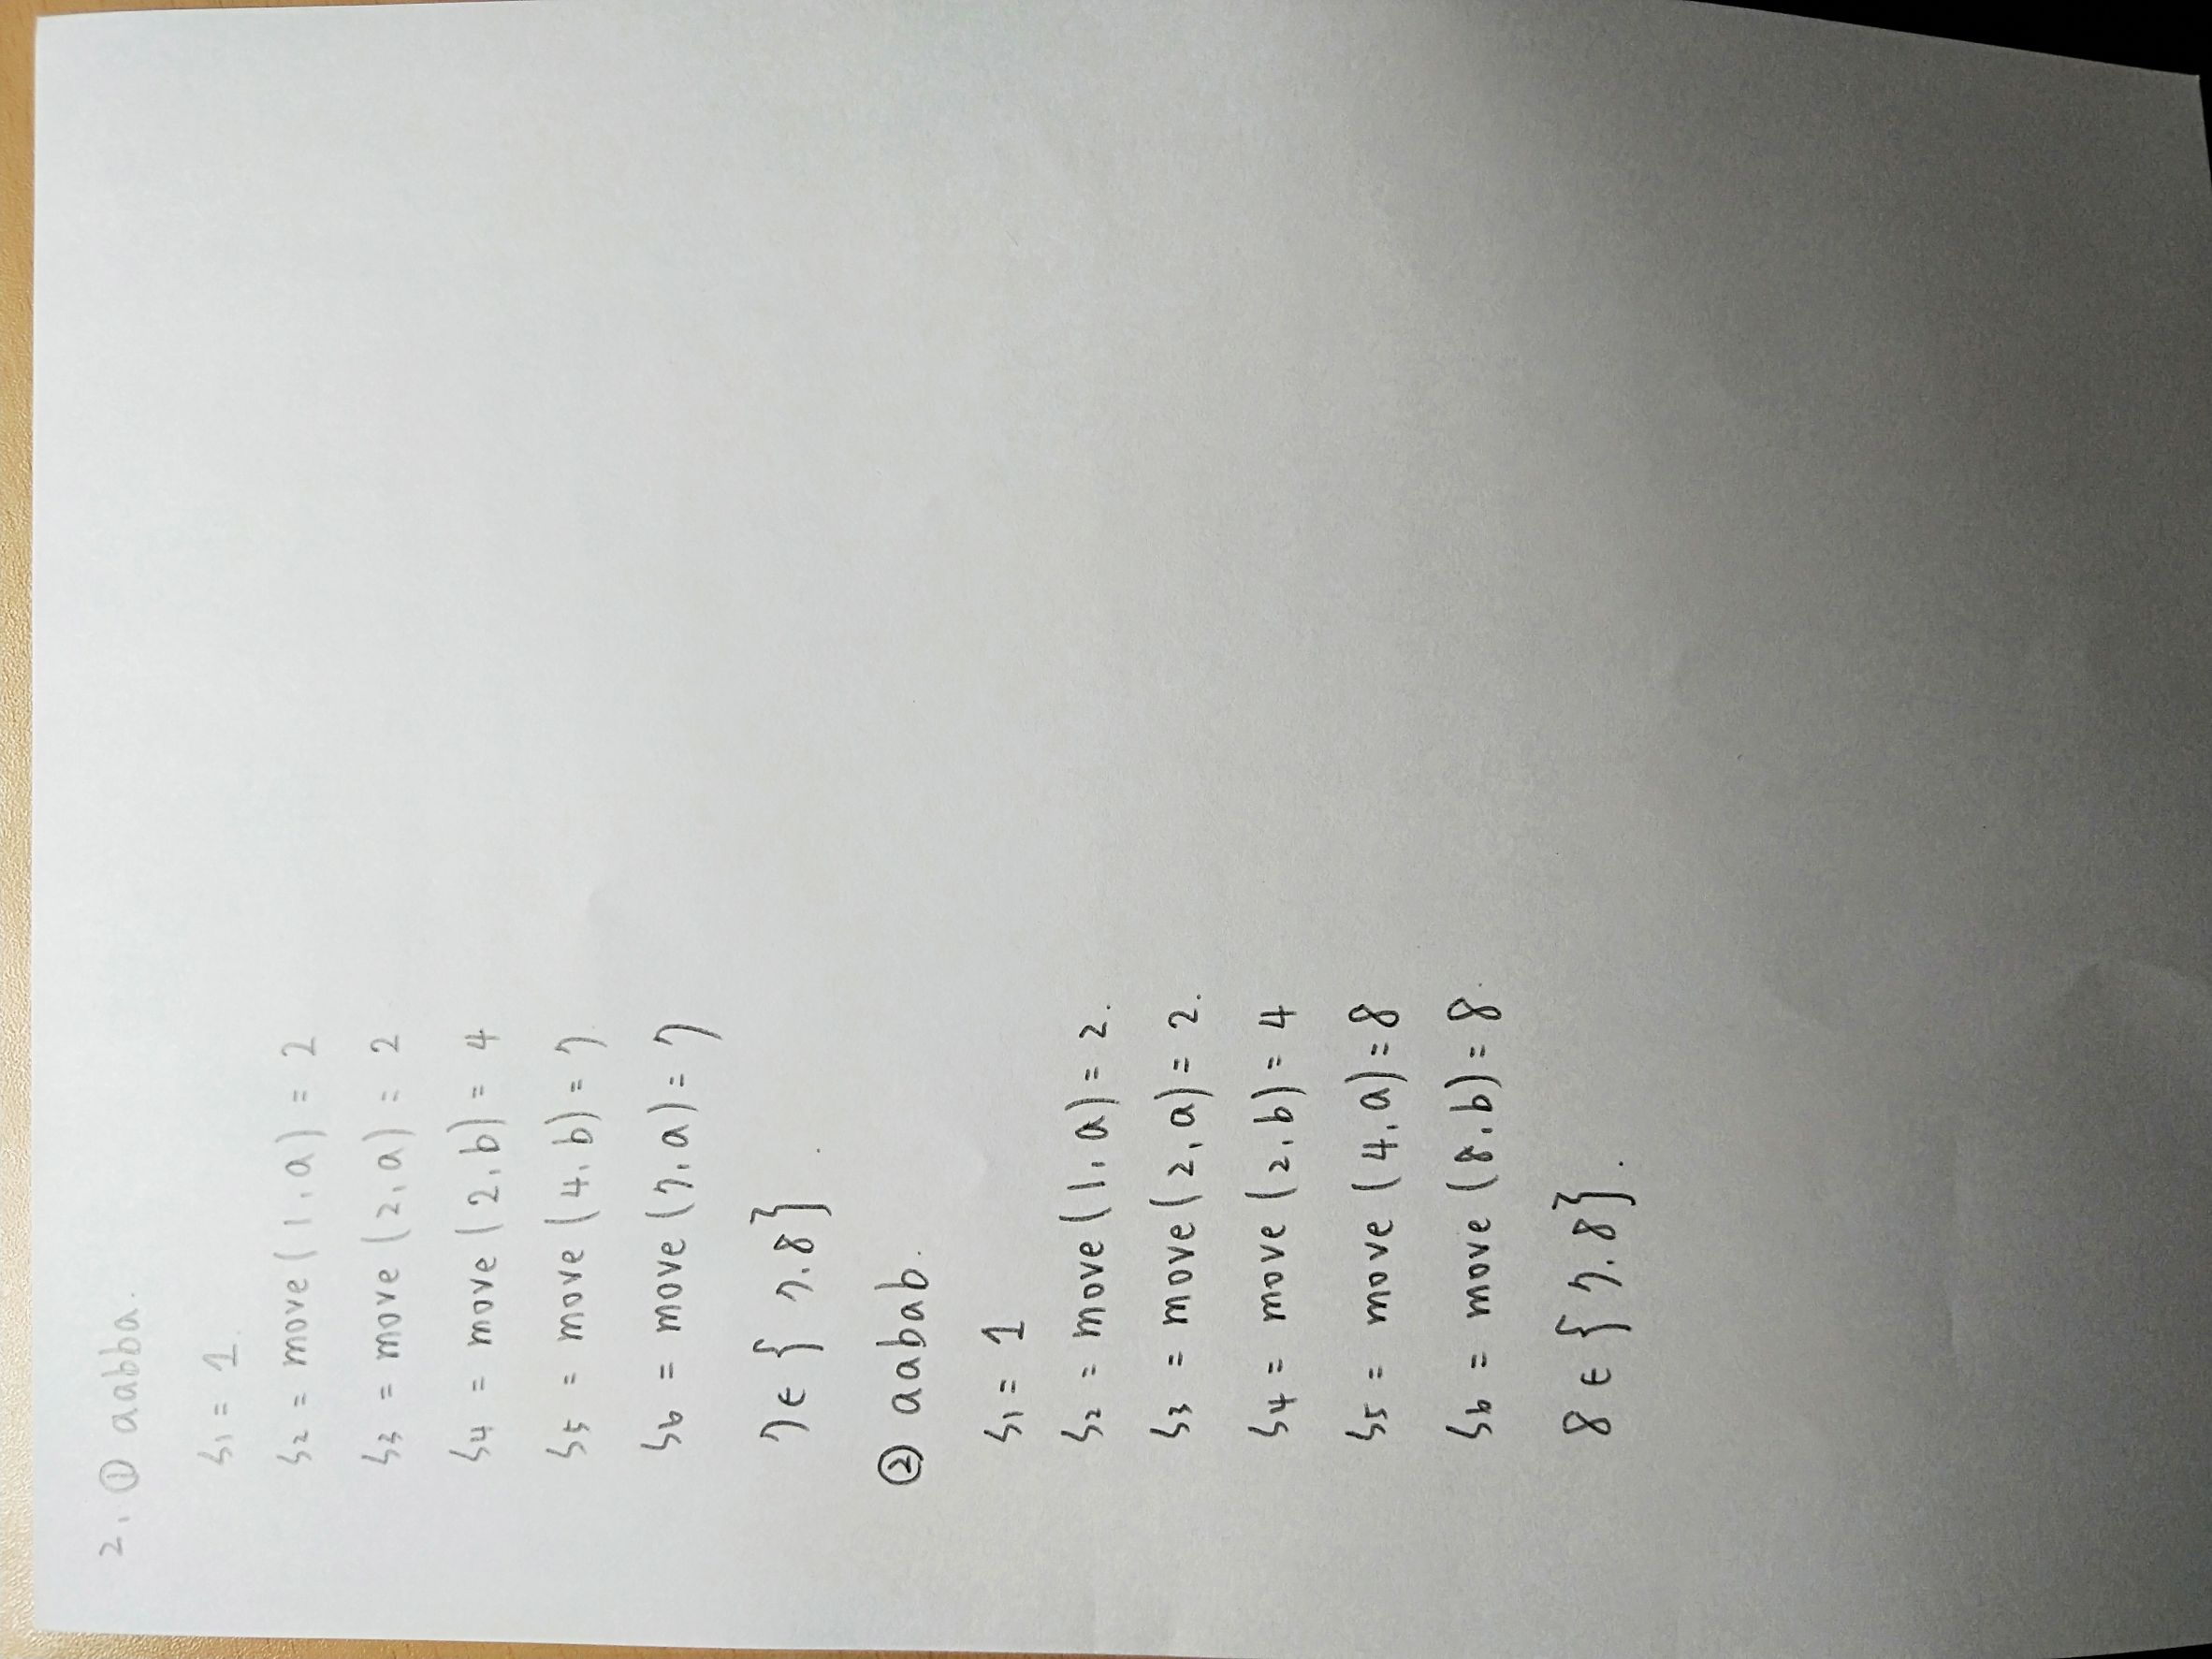 2. ① aabba.
S1 = 1.
S2 = move (1, a) = 2
S3 = move (2, a) = 2
S4 = move (2, b) = 4
S5 = move (4, b) = 7.
S6 = move (7, a) = 7
7 ∈ { 7.8} .
② aabab.
S1 = 1
S2 = move (1, a) = 2.
S3 = move (2, a) = 2.
S4 = move (2, b) = 4
S5 = move (4, a) = 8
S6 = move (8, b) = 8.
8 ∈ {7.8}.